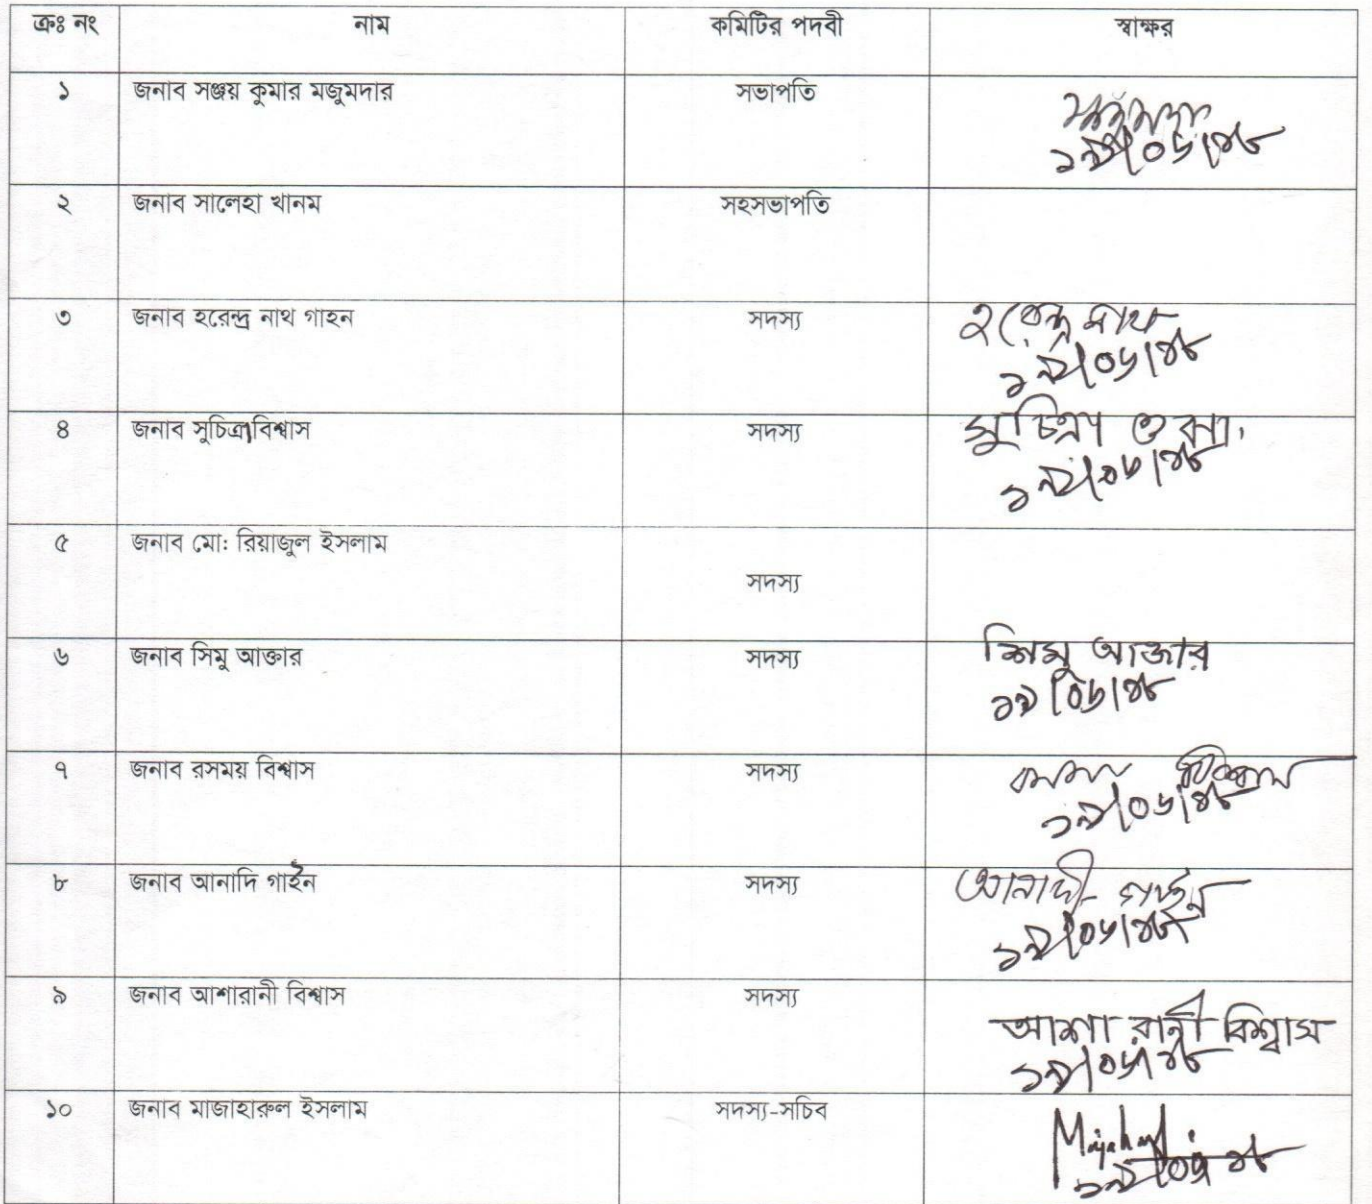 ক্রঃ নং নাম কমিটির পদবী স্বাক্ষর
১ জনাব সঞ্জয় কুমার মজুমদার সভাপতি
১৯/০৬/১৮
২ জনাব সালেহা খানম সহসভাপতি
৩ জনাব হরেন্দ্র নাথ গাহন সদস্য হরেন্দ্র নাথ
১৯/০৬/১৮
৪ জনাব সুচিত্রা বিশ্বাস সদস্য সুচিত্রা
১৯/০৬/১৮
৫ জনাব মো: রিয়াজুল ইসলাম
সদস্য
৬ জনাব সিমু আক্তার সদস্য শিমু আক্তার
১৯/০৬/১৮
৭ জনাব রসময় বিশ্বাস সদস্য বিশ্বাস
১৯/০৬/১৮
৮ জনাব আনাদি গাইন সদস্য আনাদী গাইন
১৯/০৬/১৮
৯ জনাব আশারানী বিশ্বাস সদস্য
আশা রানী বিশ্বাস
১৯/০৬/১৮
১০ জনাব মাজাহারুল ইসলাম সদস্য-সচিব
১৯/০৬/১৮